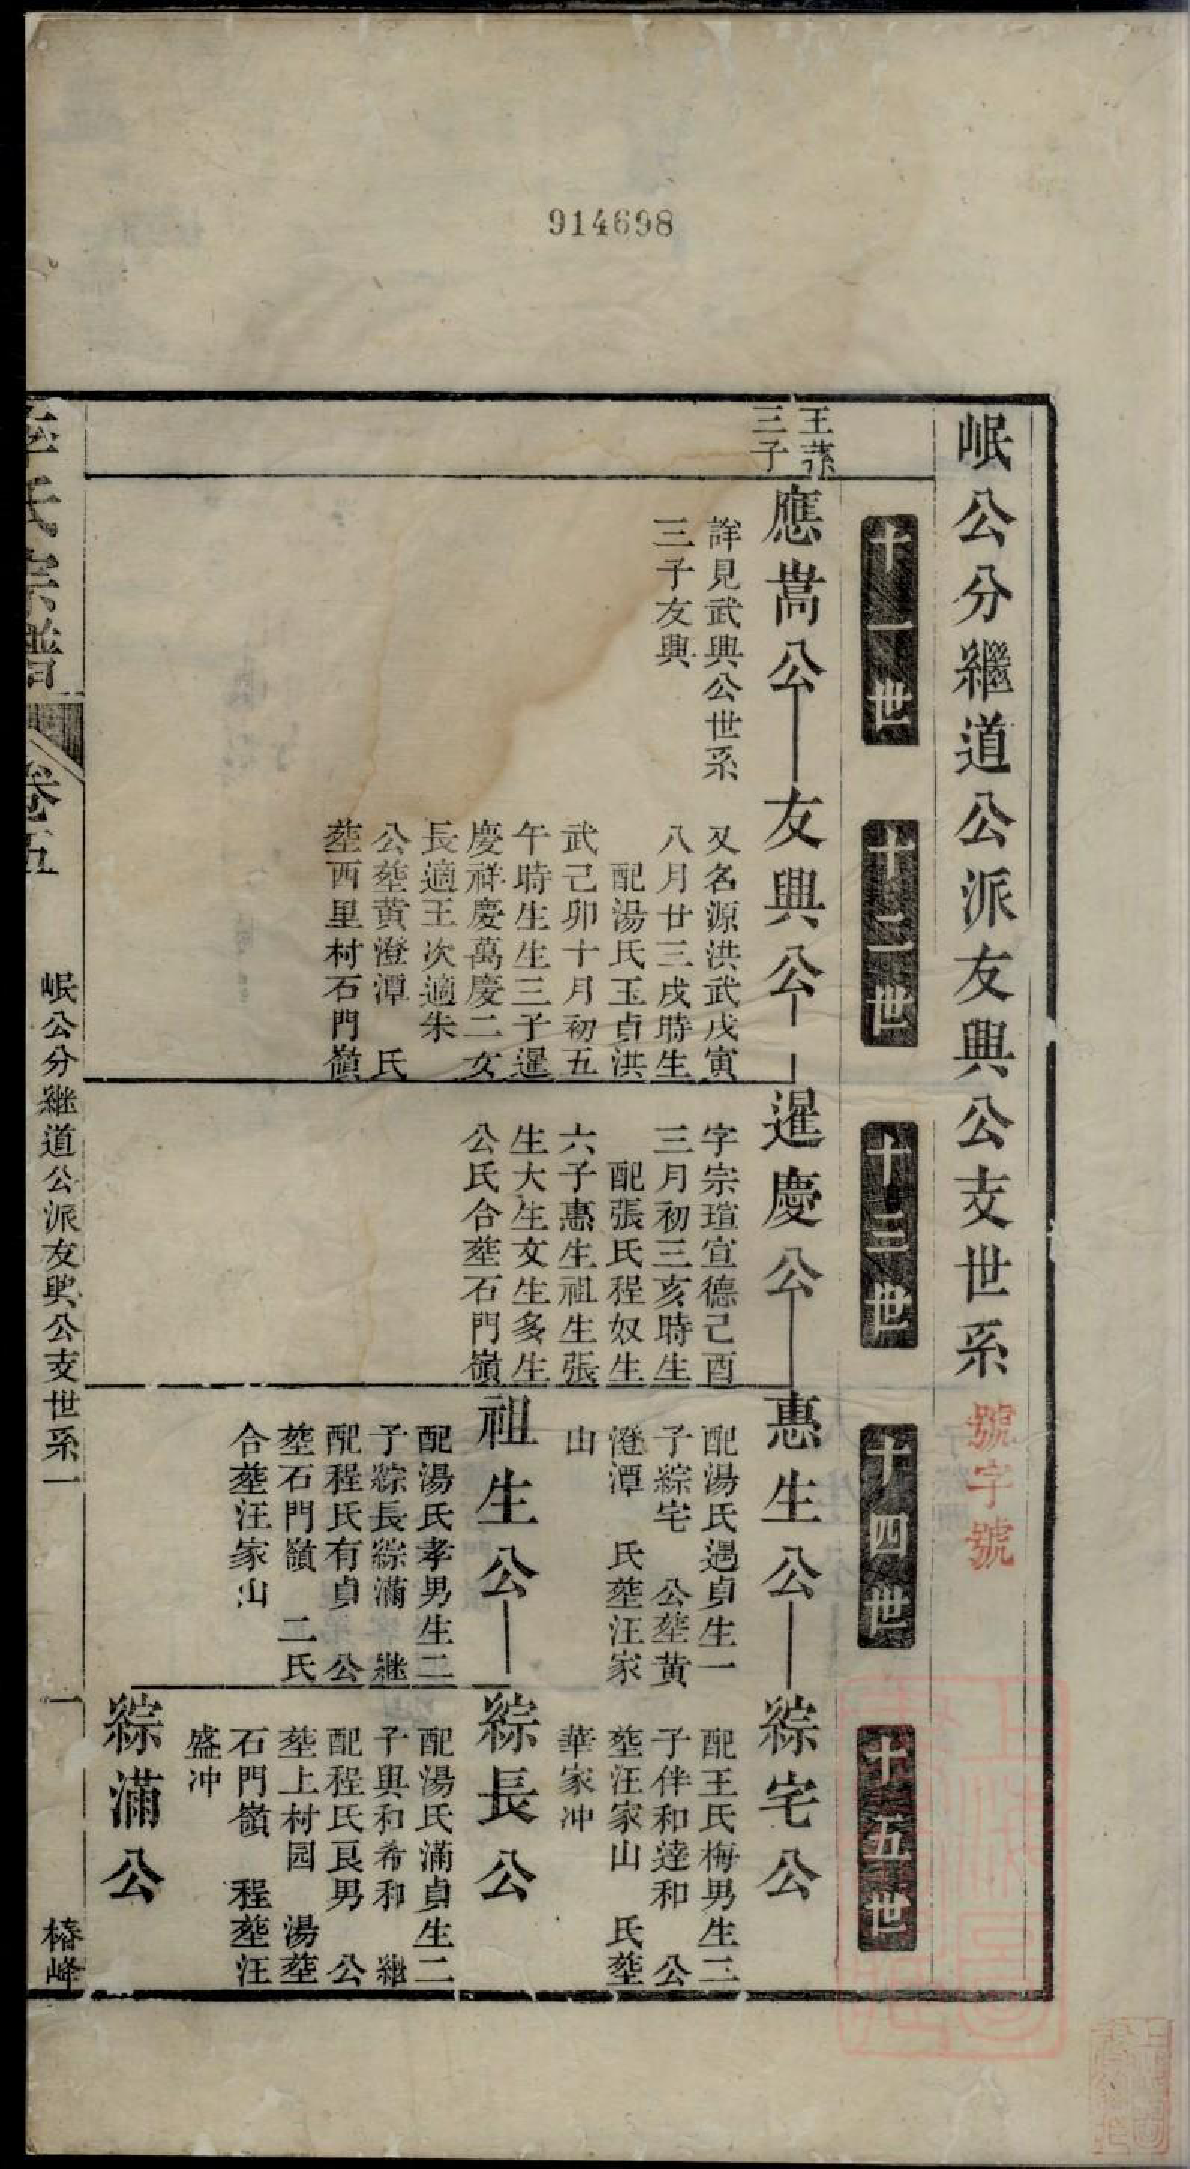 914698
岷公分繼道公派友興公支世系
號字號
十一世
十二世
十三世
十四世
十五世
王蓀
三子
應嵩公
詳見武興公世系
三子友興
友興公
又名源洪武戊寅
八月廿三戌時生
配湯氏玉貞洪
武己卯十月初五
午時生生三子暹
慶祥慶萬慶二女
長適王次適朱
公塟黄澄潭 氏
塟西里村石門嶺
暹慶公
字宗瑄宣德己酉
三月初三亥時生
配張氏程奴生
六子惠生祖生張
生大生文生多生
公氏合塟石門嶺
惠生公
配湯氏遇貞生一
子綜宅 公塟黄
澄潭 氏塟汪家
山
祖生公
配湯氏孝男生二
子綜長綜滿 継
配程氏有貞 公
塟石門嶺 二氏
合塟汪家山
綜宅公
配王氏梅男生二
子伴和達和 公
塟汪家山 氏塟
華家冲
綜長公
配湯氏滿貞生二
子興和希和 繼
配程氏良男 公
塟上村园 湯塟
石門嶺 程塟汪
盛冲
綜滿公
李氏宗譜
卷五
岷公分繼道公派友興公支世系一
一
椿峰